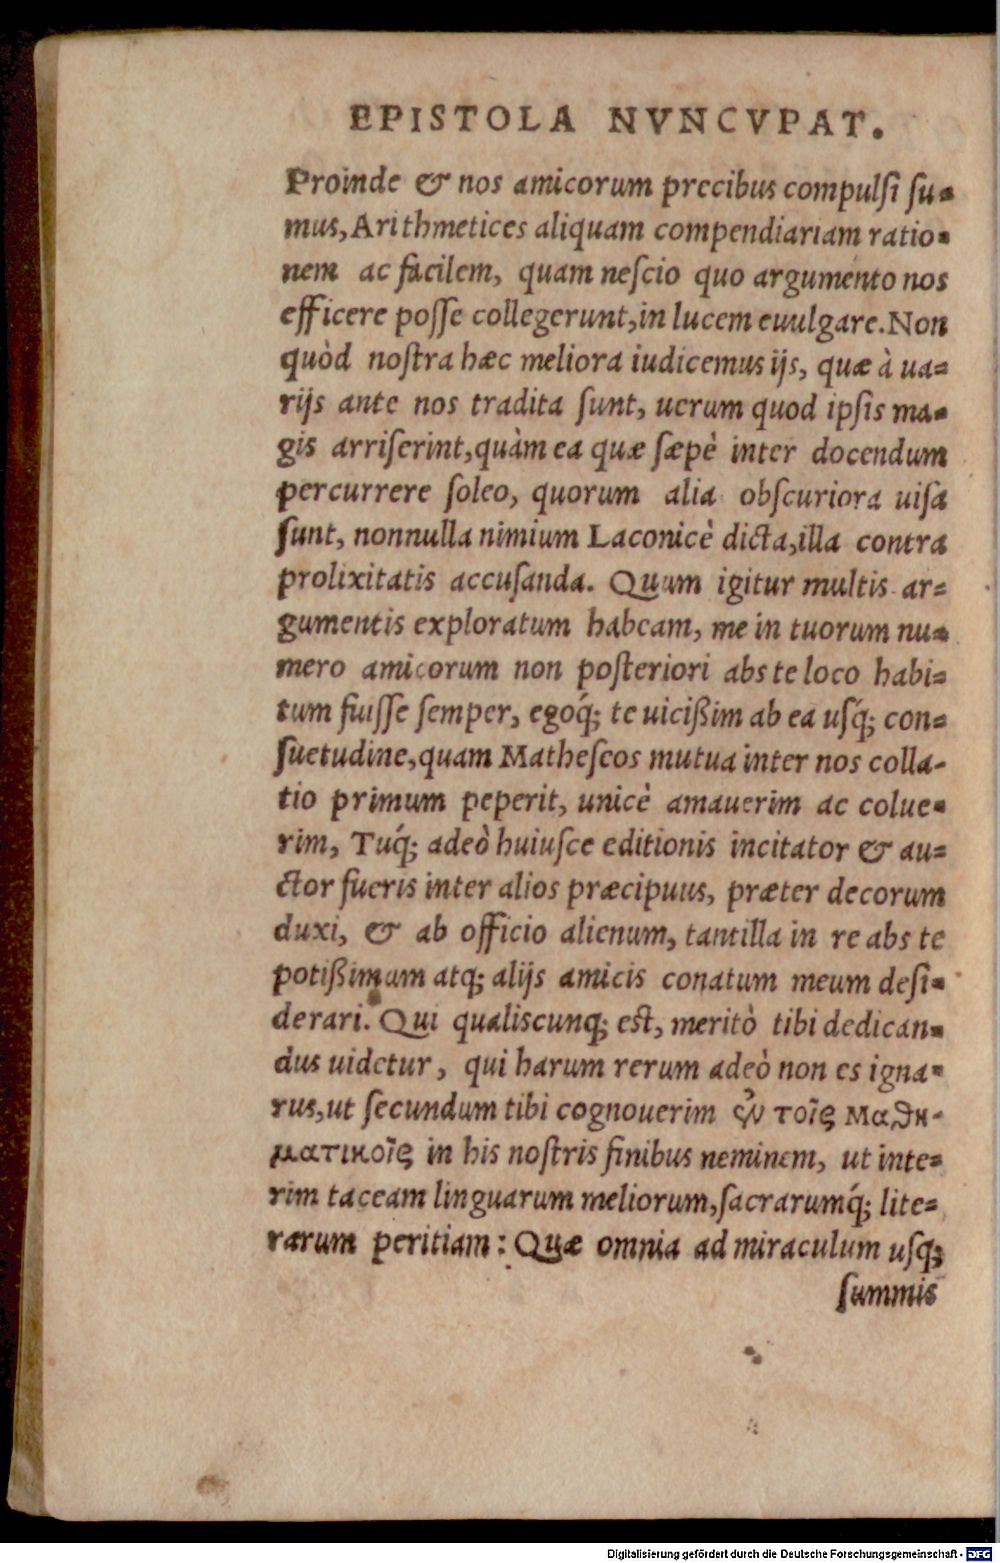 EPISTOLA NVNCVPAT.
Proinde & nos amicorum precibus compulſi ſu-
mus, Arithmetices aliquam compendiariam ratio-
nem ac facilem, quam neſcio quo argumento nos
efficere poſſe collegerunt, in lucem euulgare. Non
quòd noſtra hæc meliora iudicemus ijs, quæ à ua-
rijs ante nos tradita ſunt, uerum quod ipſis ma-
gis arriſerint, quàm ea quæ ſæpè inter docendum
percurrere ſoleo, quorum alia obſcuriora uiſa
ſunt, nonnulla nimium Laconicè dicta, illa contra
prolixitatis accuſanda. Quum igitur multis ar-
gumentis exploratum habeam, me in tuorum nu-
mero amicorum non poſteriori abs te loco habi-
tum fuiſſe ſemper, egoq́; te uicißim ab ea uſq́; con-
ſuetudine, quam Matheſeos mutua inter nos colla-
tio primum peperit, unicè amauerim ac colue-
rim, Tuq́; adeò huiuſce editionis incitator & au-
ctor fueris inter alios præcipuus, præter decorum
duxi, & ab officio alienum, tantilla in re abs te
potißimum atq; alijs amicis conatum meum deſi-
derari. Qui qualiscunq; eſt, meritò tibi dedican-
dus uidetur, qui harum rerum adeò non es igna-
rus, ut ſecundum tibi cognouerim ἐν τοῖς μαθη-
ματικοῖς in his noſtris finibus neminem, ut inte-
rim taceam linguarum meliorum, ſacrarumq́; lite-
rarum peritiam: Quæ omnia ad miraculum uſq;
ſummis
Digitalisierung gefördert durch die Deutsche Forschungsgemeinschaft - DFG